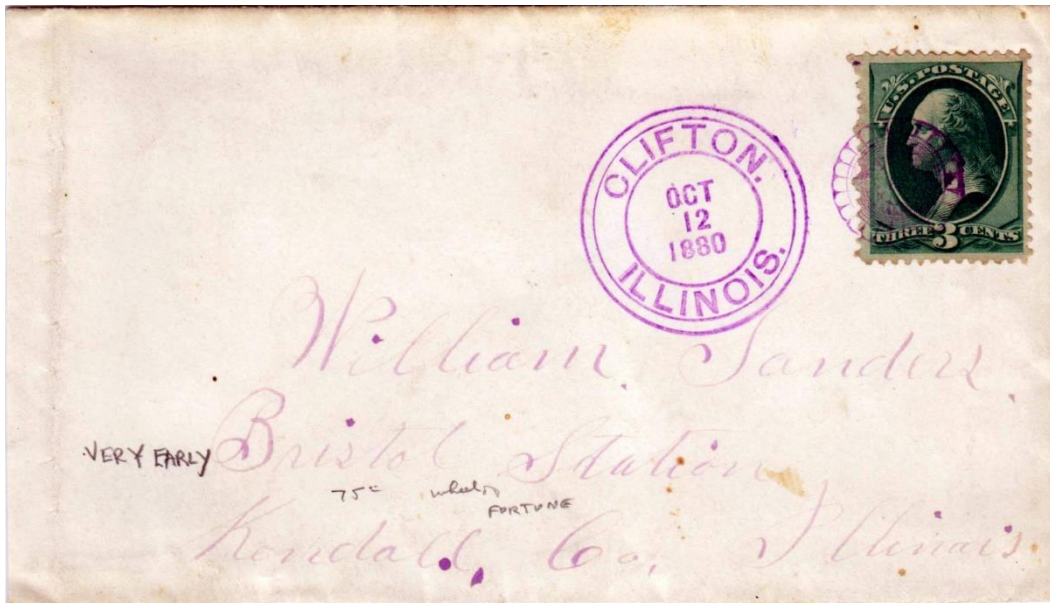 U.S. POSTAGE
THREE 3 CENTS
CLIFTON.
OCT
12
1880
ILLINOIS.
William Sanders
Bristol Station
VERY EARLY
75¢ wheel of
FORTUNE
Kendall Co, Illinois